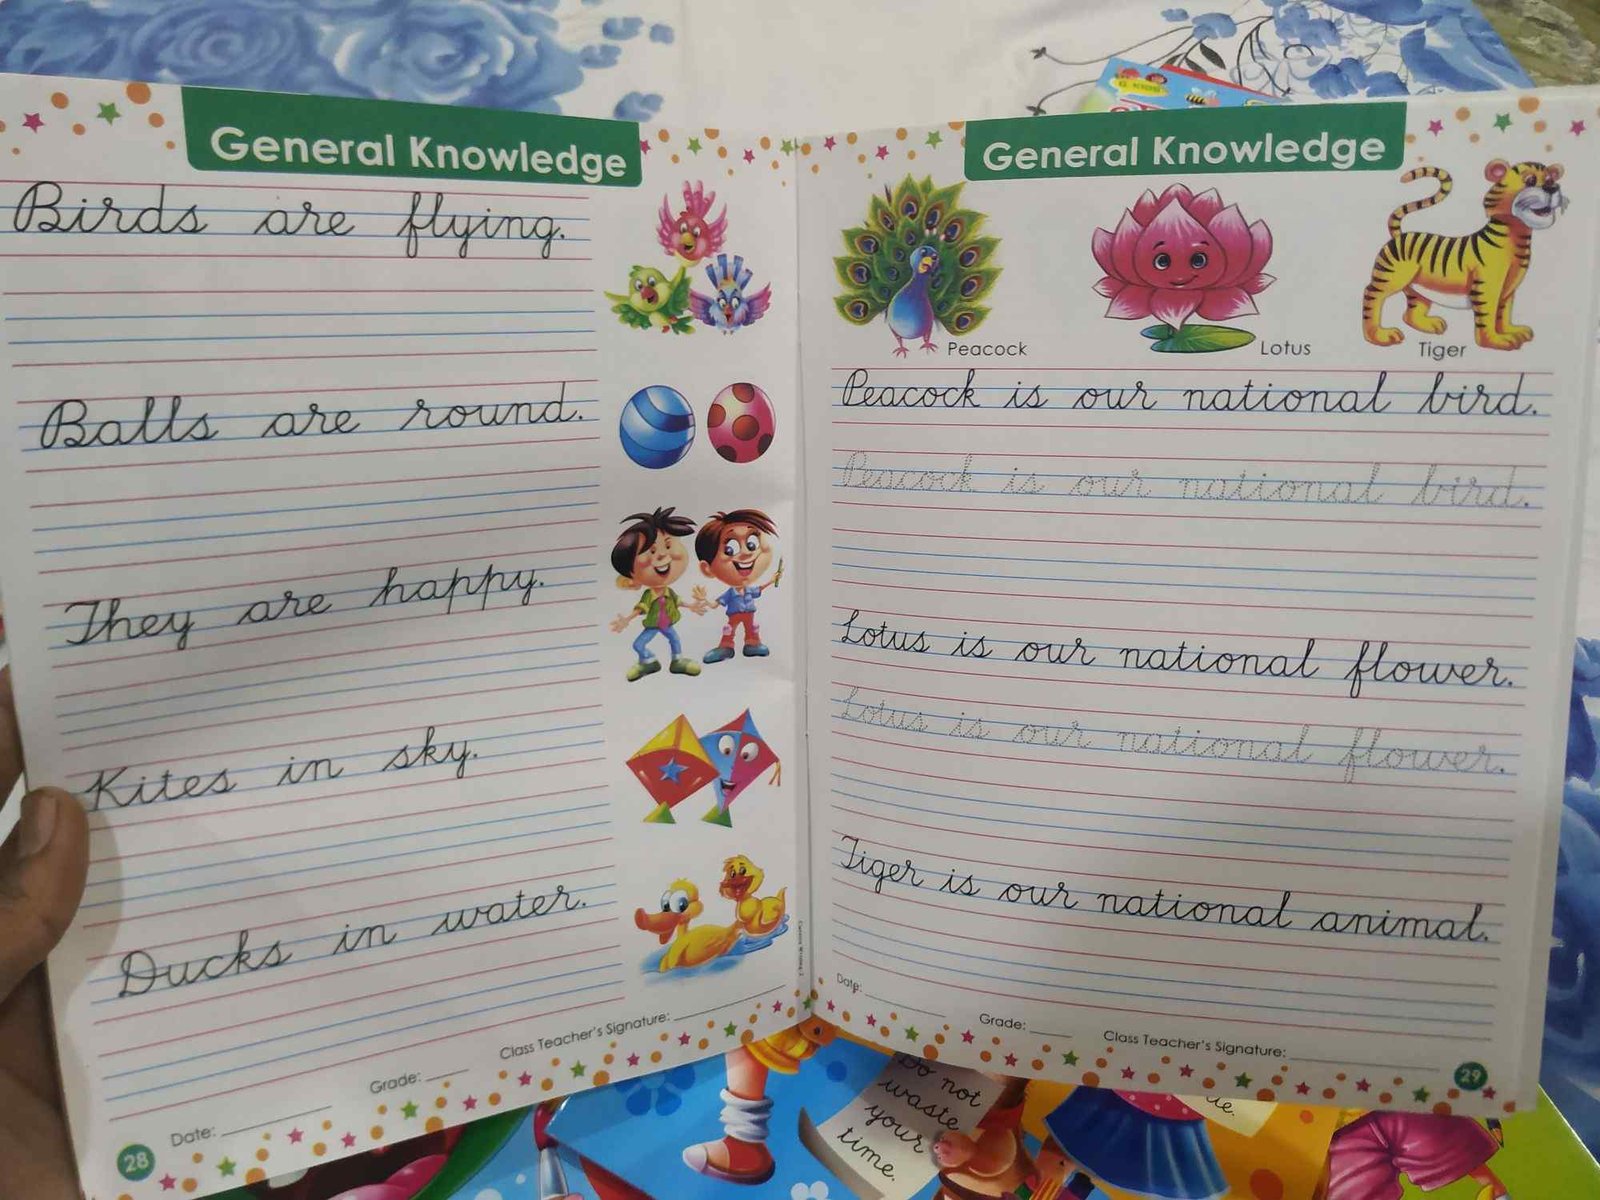 General Knowledge
Birds are flying.
Balls are round.
They are happy.
Kites in sky.
Ducks in water.
Class Teacher's Signature:
Grade:
Date:
28
General Knowledge
Peacock
Lotus
Tiger
Peacock is our national bird.
Peacock is our national bird.
Lotus is our national flower.
Lotus is our national flower.
Tiger is our national animal.
Date:
Grade:
Class Teacher's Signature:
29
Do not
waste
your
time.